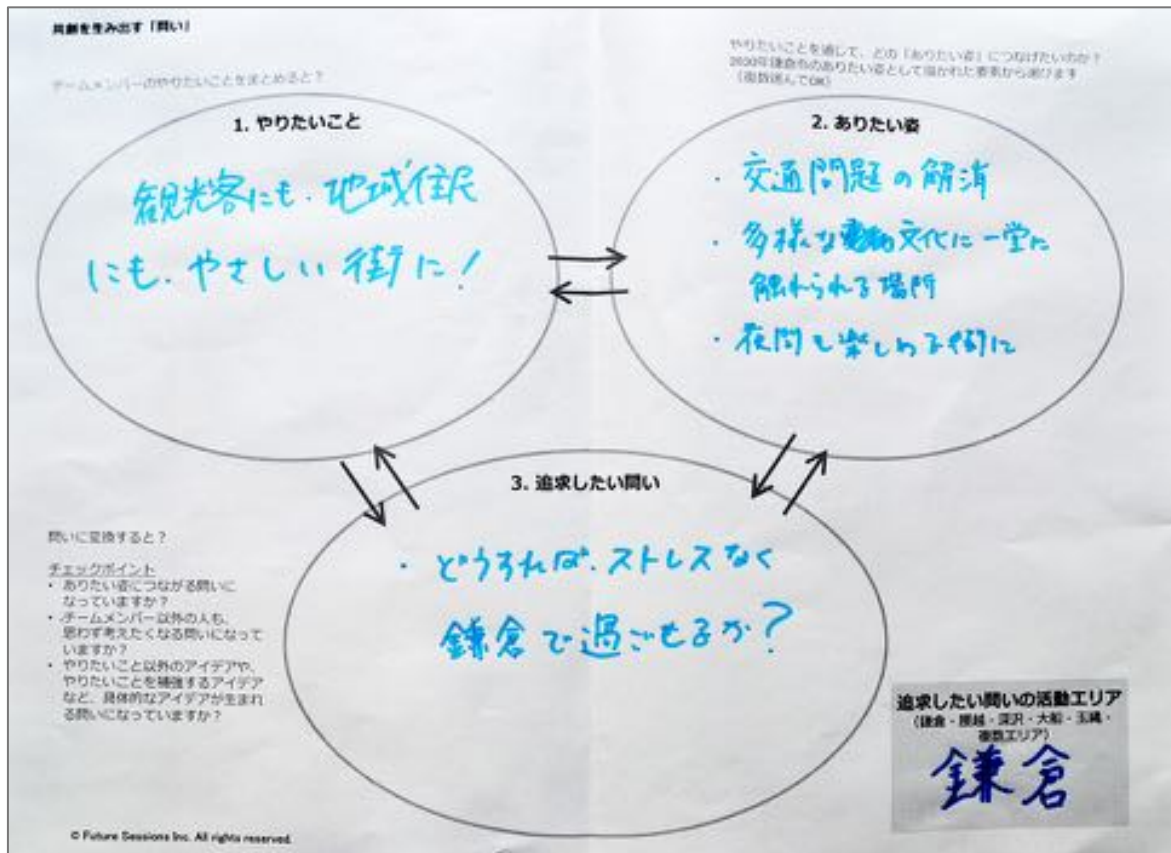 共創を生み出す「問い」
チームメンバーのやりたいことをまとめると？
やりたいことを通して、どの「ありたい姿」につなげたいのか？
2030年鎌倉市のありたい姿として描かれた要素から選びます
（複数選んでOK）
1. やりたいこと
観光客にも、地域住民
にも、やさしい街に！
2. ありたい姿
・交通問題の解消
・多様な文化に一堂に
触れられる場所
・夜間も楽しめる街に
3. 追求したい問い
・どうすれば、ストレスなく
鎌倉で過ごせるか？
問いに変換すると？
チェックポイント
• ありたい姿につながる問いに
なっていますか？
• チームメンバー以外の人も、
思わず考えたくなる問いになって
いますか？
• やりたいこと以外のアイデアや、
やりたいことを補強するアイデア
など、具体的なアイデアが生まれ
る問いになっていますか？
追求したい問いの活動エリア
（鎌倉・腰越・深沢・大船・玉縄・
複数エリア）
鎌倉
© Future Sessions Inc. All rights reserved.